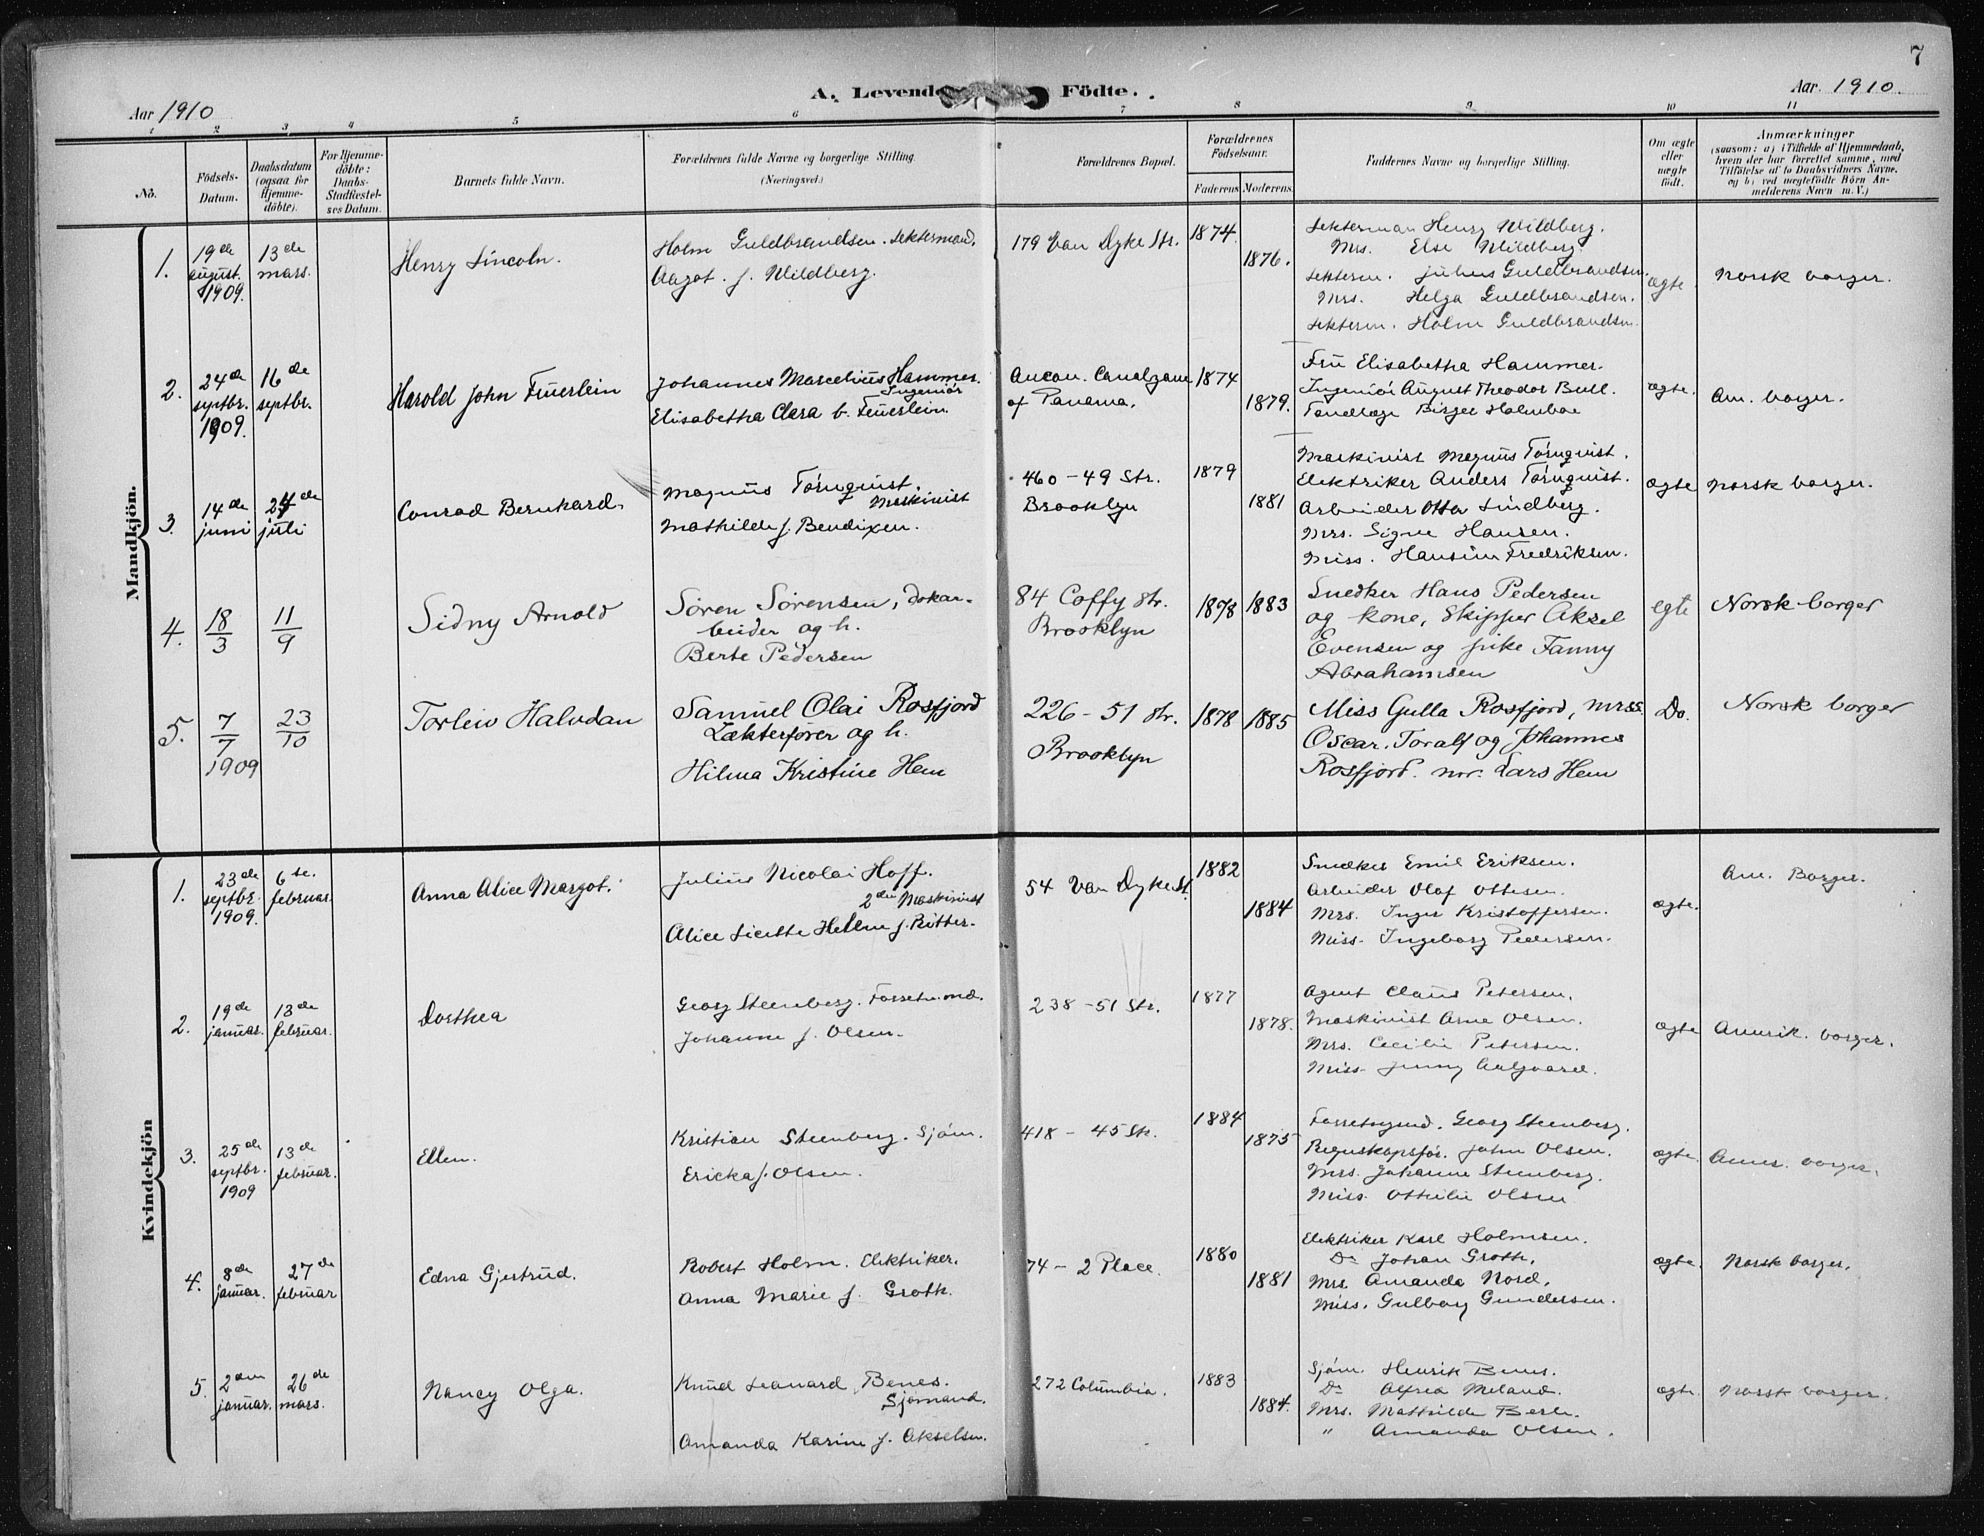 7
A. Levende Födte.
Aar 1910
Aar 1910.
1 2 3 4 5 6 7 8 9 10 11
No.
Födsels-
Datum.
Daabsdatum
(ogsaa for
Hjemme-
döbte).
For Hjemme-
döbte:
Daabs-
Stadfæstel-
ses Datum.
Barnets fulde Navn.
Forældrenes fulde Navne og borgerlige Stilling.
(Næringsvei.)
Forældrenes Bopæl.
Forældrenes
Födselsaar.
Faderens
Moderens
Faddernes Navne og borgerlige Stilling.
Om ægte
eller
uægte
födt.
Anmærkninger
(saasom: a) i Tilfælde af Hjemmedaab,
hvem der har forrettet samme, med
Tilföielse af to Daabsvidners Navne,
og b) ved uægtefödte Börn An-
melderens Navn m. V.)
Mandkjön.
1.
19de
august.
1909.
13de
mars.
Henry Lincoln.
Holm Guldbrandsen. Lektermand.
Aagot. f. Wildberg.
179 Van Dyke Str.
1874.
1876.
Lekterman Henry Wildberg.
Mrs. Else Wildberg
Lekterm. Julius Guldbrandsen.
Mrs. Helga Guldbrandsen.
Lekterm. Holm Guldbrandsen.
ægte
Norsk borger.
2.
24de
septbr.
1909.
16de
septbr.
Harold John Feuerlein
Johannes Marcelius Hammer.
Ingeniör
Elisabetha Clara b. Feuerlein.
Ancon. Canalzone
of Panama.
1874
1879.
Frü Elisabetha Hammer.
Ingeniör August Theodor Bull.
Tandlæge Birger Holmboe
ægte.
Am. borger.
3.
14de
juni
24de
juli
Conrad Bernhard.
Magnus Törnquist.
Maskinist
Mathilde f. Bendixen.
460-49 Str.
Brooklyn
1879
1881
Maskinist Magnus Törnquist.
Elektriker Anders Törnquist.
Arbeider Otto Lindberg.
Mrs. Signe Hansen.
Miss. Hansine Fredriksen.
ægte
Norsk borger.
4.
18/3
11/9
Sidny Arnold
Søren Sørensen, dokar-
beider og h.
Berte Pedersen
84 Coffy str.
Brooklyn
1878
1883
Snedker Hans Pedersen
og kone, Skipper Aksel
Evensen og pike Fanny
Abrahamsen
egte
Norsk borger
5.
7/7
1909
23/10
Torleiv Halvdan
Samuel Olai Rosfjord
Lækterfører og h.
Hilma Kristine Hem
226-51 str.
Brooklyn
1878
1885
Miss Gulla Rosfjord, mrss.
Oscar. Toralf og Johannes
Rosfjord. mr. Lars Hem
Do.
Norsk borger
Kvindekjön
1.
23de
septbr.
1909.
6te.
februar.
Anna Alice Margot.
Julius Nicolai Hoff.
2den Maskinist
Alice Licette Helene f. Ritter.
54 Van Dyke St.
1882
1884
Snedker Emil Eriksen.
Arbeider Olaf Ottesen.
Mrs. Inger Kristoffersen.
Miss. Ingeborg Pedersen.
ægte.
Am. Borger.
2.
19de
januar.
13de
februar.
Dorthea
Georg Steenberg. Forretn.md.
Johanne f. Olsen.
238-51 Str.
1877
1878.
Agent Claus Petersen.
Maskinist Arne Olsen.
Mrs. Cecilie Petersen.
Miss. Jenny
ægte
Amerik. borger.
3.
25de
septbr.
1909
13de
februar.
Ellen.
Kristian Steenberg. Sjöm.
Ericka f. Olsen.
418-45 Str.
1884
1875
Forretngsmd. Georg Steenberg.
Regnskapsför. John Olsen.
Mrs. Johanne Steenberg.
Miss. Ottilie Olsen
ægte.
Amer. borger.
4.
8de
januar.
27de
februar
Edna Gjertrud.
Robert Holm. Elektriker.
Anna Marie f. Groth.
74-2 Place.
1880
1881
Elektriker Karl Holmsen.
Do Johan Groth.
Mrs. Amanda Nord.
Miss. Gulborg Gundersen.
ægte.
Norsk borger.
5.
2den
januar.
26de
mars.
Nancy Olga.
Knud Leonard Benes.
Sjömand.
Amanda Karine f. Akselsen.
272 Columbia.
1883
1884.
Sjöm. Henrik Benes.
Do Alfred Meland.
Mrs. Mathilde
" Amanda Olsen.
ægte
Norsk borger.